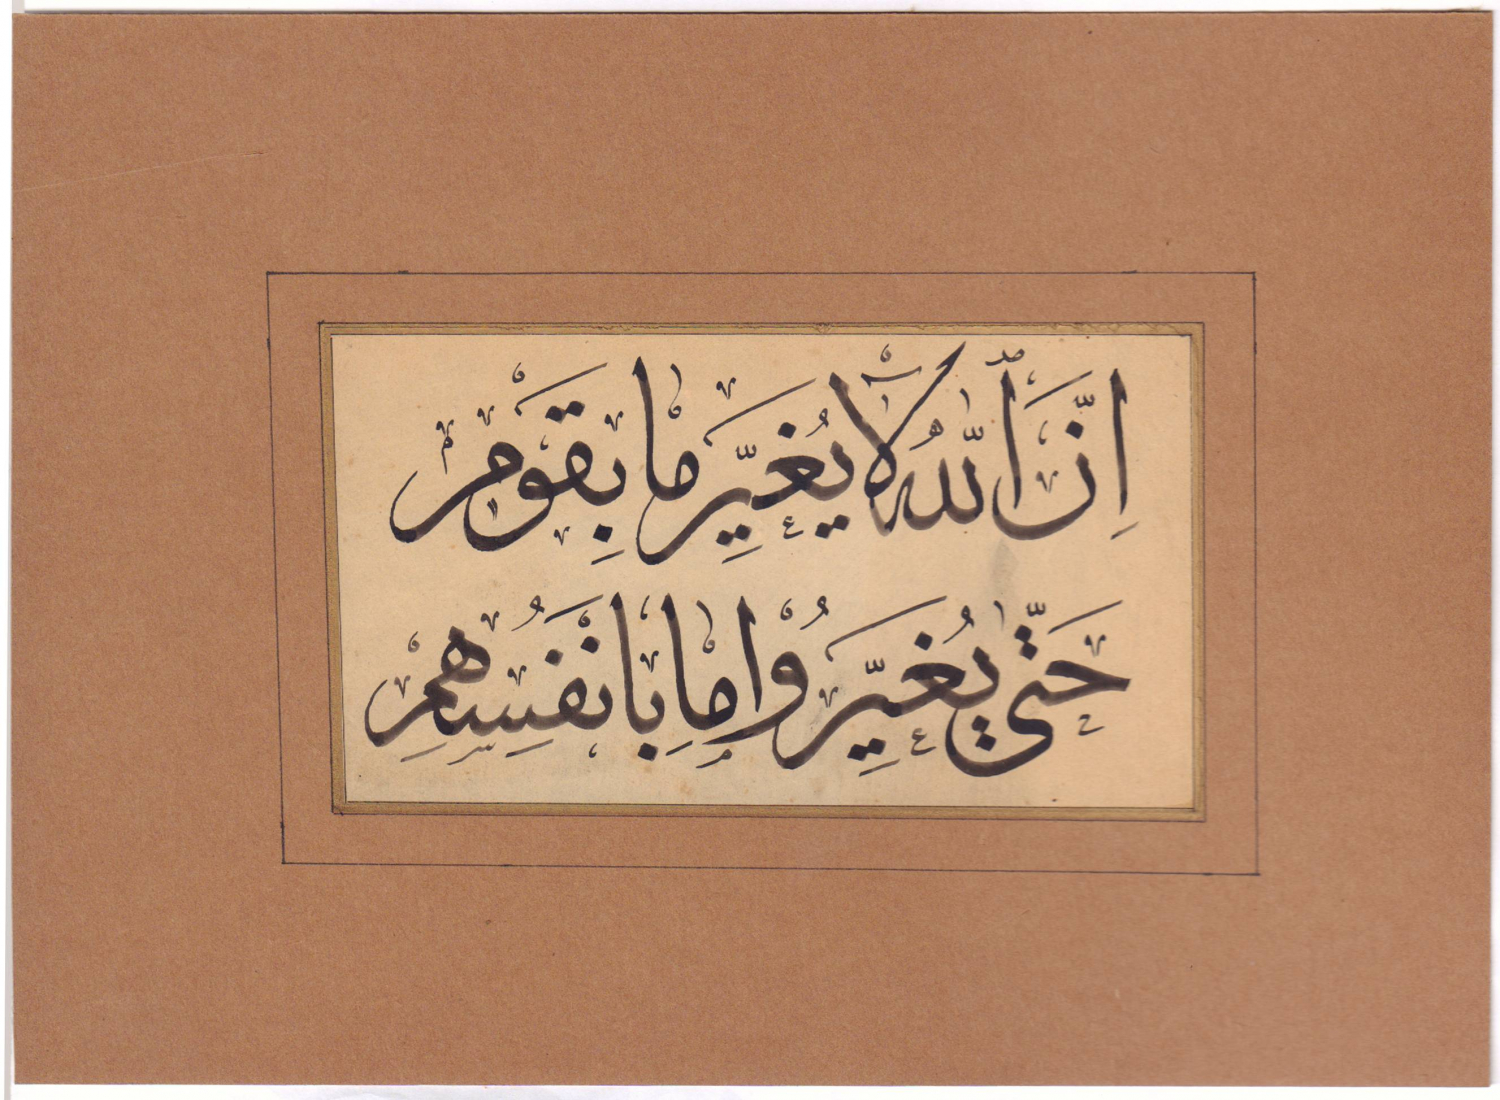 اِنَّ ٱللّٰهَ لَا يُغَيِّرُ مَا بِقَوْمٍ
حَتّٰى يُغَيِّرُوا مَا بِاَنْفُسِهِمْ